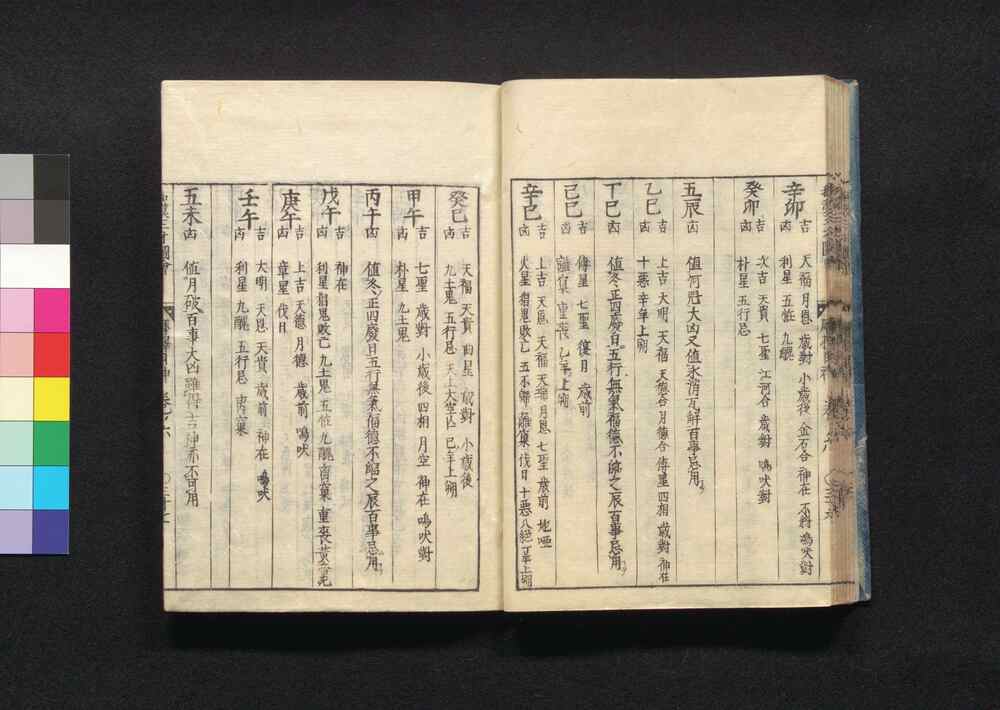 辛卯
吉 天福 月恩 歲對 小歲後 金石合 神在 不將 鳴吠對
凶 利星 五離 九醜
癸卯
吉 次吉 天貴 七聖 江河合 歲對 鳴吠對
凶 朴星 五行忌
五辰
凶 值河魁大凶又值氷消瓦解百事忌用
乙巳
吉 上吉 大明 天福 天恩合 月德合 傳星 四相 歲對 神在
凶 十惡 辛年上朔
丁巳
凶 值冬正四廢日五行無氣福德不臨之辰百事忌用
己巳
吉 傳星 七聖 復月 歲前
凶 離窠 重喪 乙年上朔
辛巳
吉 上吉 天恩 天福 天瑞 月恩 七聖 歲前 地啞
凶 火星 猖鬼敗亡 五不歸 離窠 伐日 十惡 八絕 丁年上朔
癸巳
吉 天福 天貴 曲星 歲對 小歲後
凶 九土鬼 五行忌 天上大空亡 己年上朔
甲午
吉 七聖 歲對 小歲後 四相 月空 神在 鳴吠對
凶 朴星 九土鬼
丙午
凶 值冬正四廢日五行無氣福德不臨之辰百事忌用
戊午
吉 神在
凶 利星 猖鬼敗亡 九土鬼 五離 九醜 离窠 重喪
庚午
吉 上吉 天德 月德 歲前 鳴吠
凶 章星 伐日
壬午
吉 大明 天恩 天貴 歲前 神在 鳴吠
凶 利星 九醜 五行忌 离窠
五未
凶 值月破百事大凶雖得吉神亦不可用